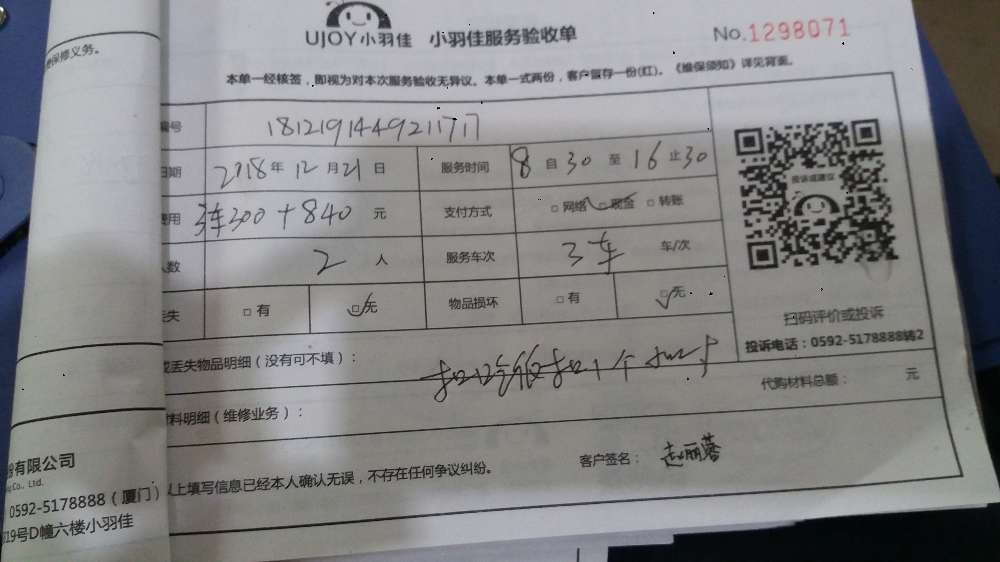 保修义务。
UJOY小羽佳 小羽佳服务验收单
No.1298071
本单一经核签，即视为对本次服务验收无异议。本单一式两份，客户留存一份(红)。《维保须知》详见背面。
编号 181219144921171
日期 2018年12月21日 服务时间 8自30至16止30
费用 300+840元 支付方式 □网络 □现金 □转账
人数 2人 服务车次 3车 车/次
丢失 □有 □无 物品损坏 □有 □无
投诉或建议
扫码评价或投诉
投诉电话：0592-5178888转2
或丢失物品明细（没有可不填）：
扣 扣1个
代购材料总额： 元
材料明细（维修业务）：
以上填写信息已经本人确认无误，不存在任何争议纠纷。
客户签名： 赵丽蓉
有限公司
Co., Ltd.
0592-5178888（厦门）
19号D幢六楼小羽佳